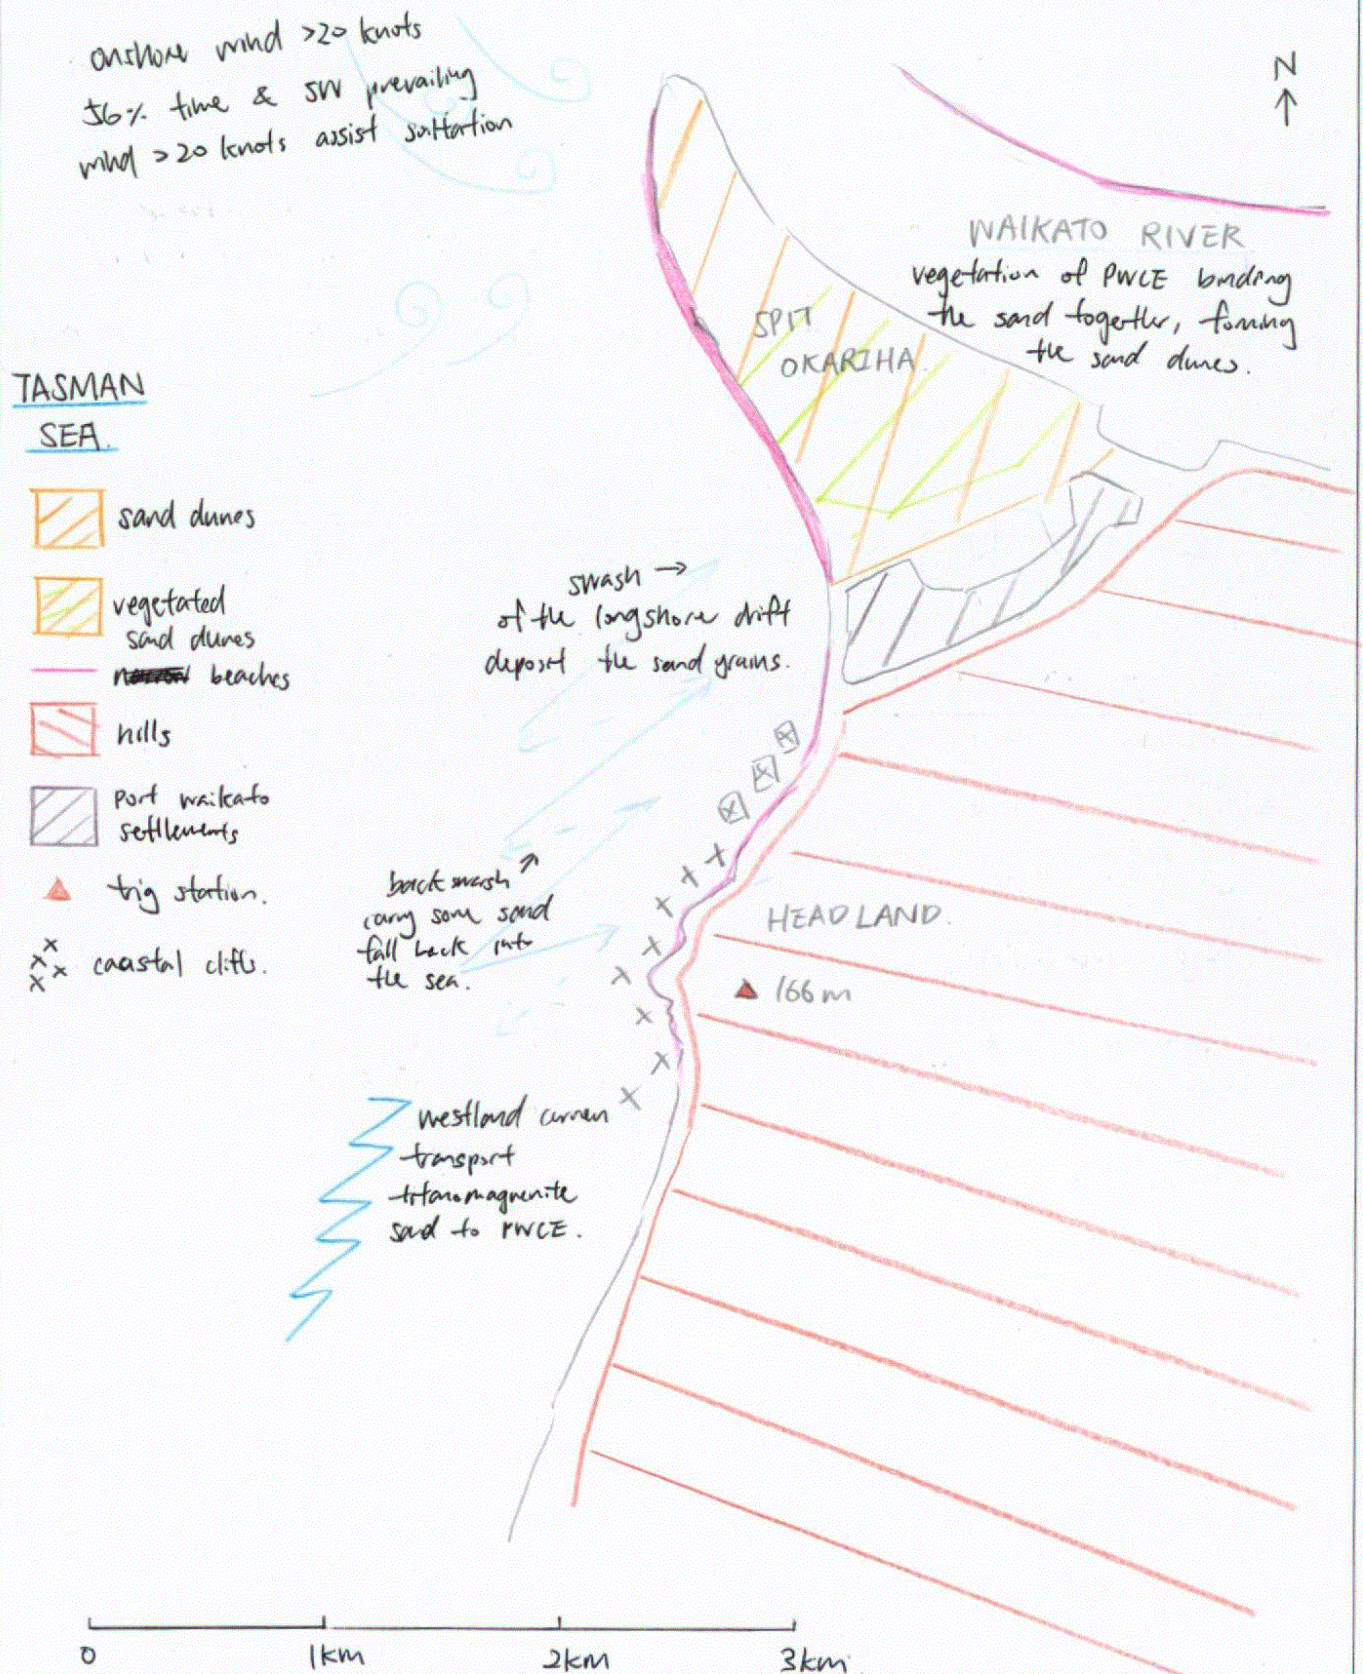 onshore wind >20 knots
56% time & SW prevailing
wind >20 knots assist saltation
N
WAIKATO RIVER
vegetation of PWCE binding
the sand together, forming
the sand dunes.
SPIT
OKARIHA.
TASMAN
SEA.
sand dunes
vegetated
sand dunes
beaches
hills
Port waikato
settlements
trig station.
coastal cliffs.
swash →
of the longshore drift
deposit the sand grains.
backswash
carry some sand
fall back into
the sea.
HEADLAND.
166m
westland curren
transport
titanomagnenite
sand to PWCE.
0 1km 2km 3km